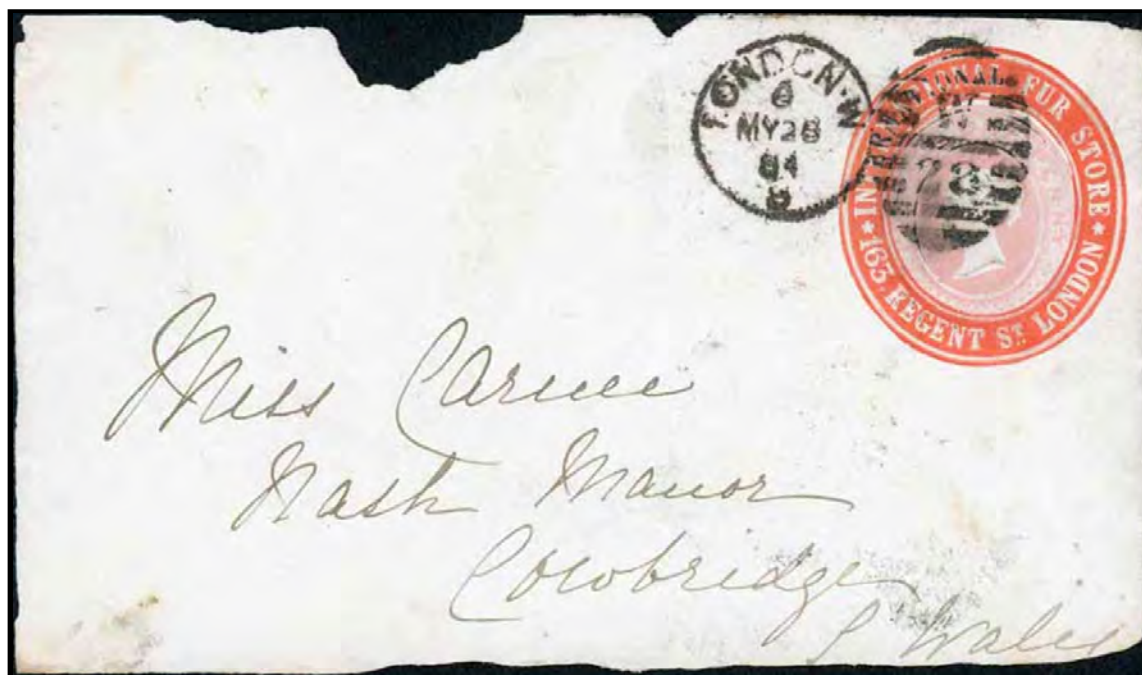 LONDON·W
6
MY28
84
INTERNATIONAL FUR STORE
*163, REGENT ST. LONDON*
Miss Carne
Nash Manor
Cowbridge
S Wales